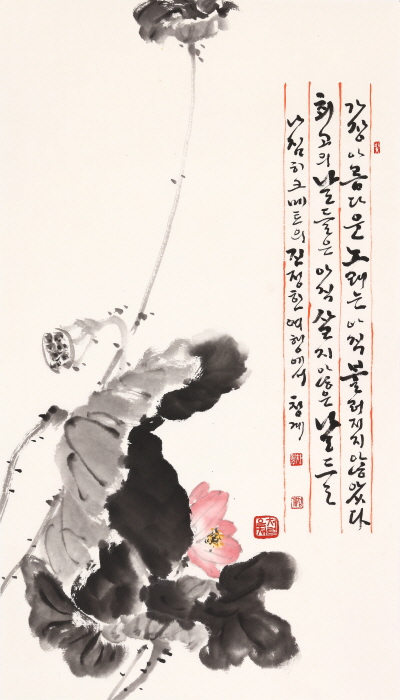 가장 아름다운 노래는 아직 불러지지 않았다
최고의 날들은 아직 살지 않은 날들
나짐 히크메트의 진정한 여행에서 청계